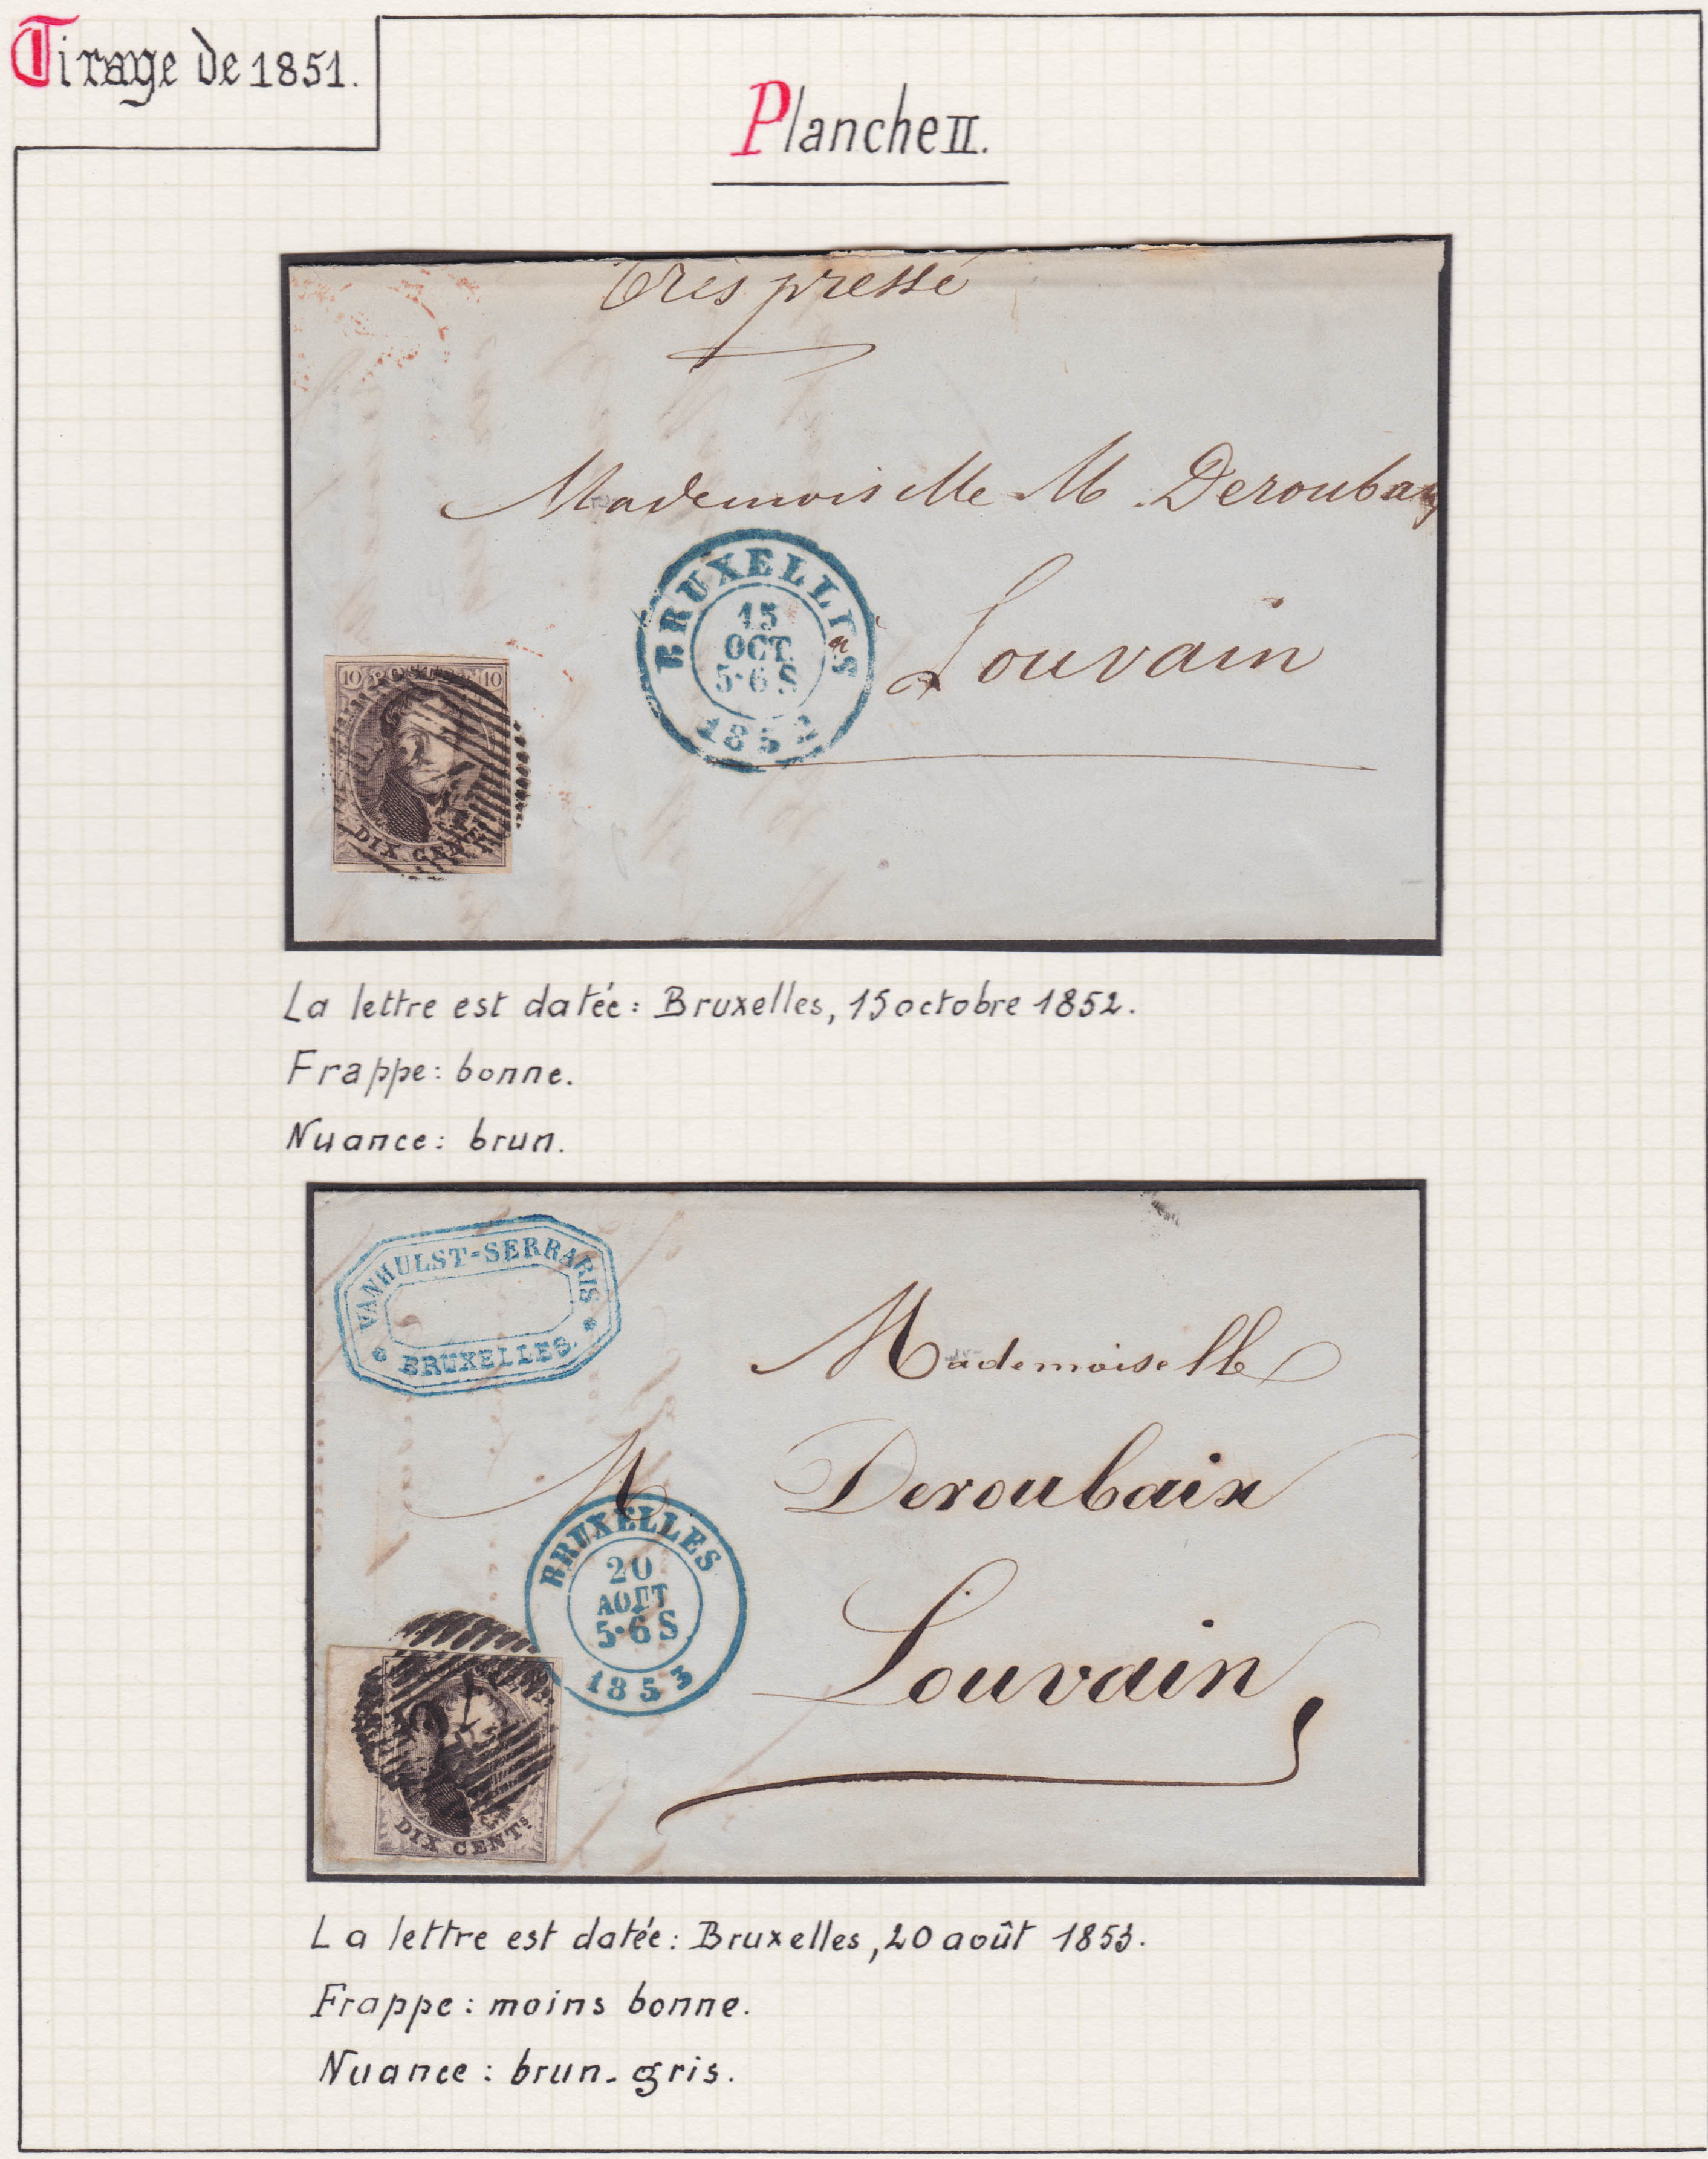 Tirage de 1851.
Planche II.
très pressé
Mademoiselle M. Deroubaix
BRUXELLES
15
OCT.
5·6 S
1852
Louvain
10 POSTES 10
DIX CENTS
La lettre est datée: Bruxelles, 15 octobre 1852.
Frappe: bonne.
Nuance: brun.
VANHULST-SERRARIS
BRUXELLES.
Mademoiselle
M Deroubaix
BRUXELLES
20
AOUT
5·6 S
1853
Louvain
DIX CENTS.
La lettre est datée: Bruxelles, 20 août 1853.
Frappe: moins bonne.
Nuance: brun-gris.